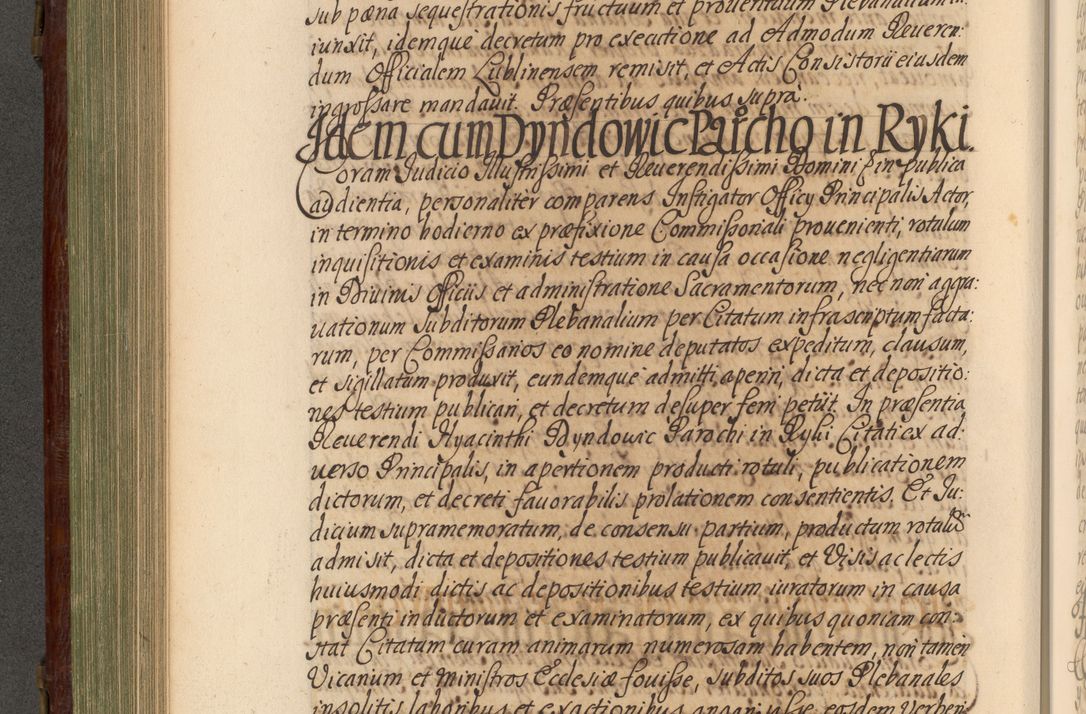 sub pæna sequestrationis fructuum et prouentuum Plebanalium in:
iunxit, idemque decretum pro executione ad Admodum Reueren:
dum Officialem Lublinensem remisit, et Actis Consistorii eiusdem
ingrossare mandauit. Præsentibus quibus supra.
Idem cum Dyndowic Paroco in Ryki.
Coram Iudicio Illustrissimi et Reuerendissimi Domini in publica
audientia, personaliter comparens Instigator Officy Principalis Actor,
in termino hodierno ex præfixione Commissoriali prouenienti, rotulum
inquisitionis et examinis testium in causa occasione negligentiarum
in Diuinis Officiis et administratione Sacramentorum, nec non aggra:
uationum Subditorum Plebanalium per Citatum infrascriptum facta:
rum, per Commissarios eo nomine deputatos expeditum, clausum,
et sigillatum produxit, eundemque admitti aperiri, dicta et depositio:
nes testium publicari, et decretum desuper ferri petiit. In præsentia
Reuerendi Hyacinthi Dyndowic Parochi in Ryki Citati ex ad:
uerso Principalis, in apertionem producti rotuli, publicationem
dictorum, et decreti fauorabilis prolationem consentientis. Et Iu:
dicium supramemoratum, de consensu partium, productum rotulum
admisit, dicta et depositiones testium publicauit, et Visis ac lectis
huiusmodi dictis ac depositionibus testium iuratorum in causa
præsenti inductorum et examinatorum, ex quibus quoniam con:
stat Citatum curam animarum numerosam habentem, non tamen
Vicarium et Ministros Ecclesiæ fouisse, subditos suos Plebanales
insolitis laboribus et exactionibus angariasse, eosdem verberi